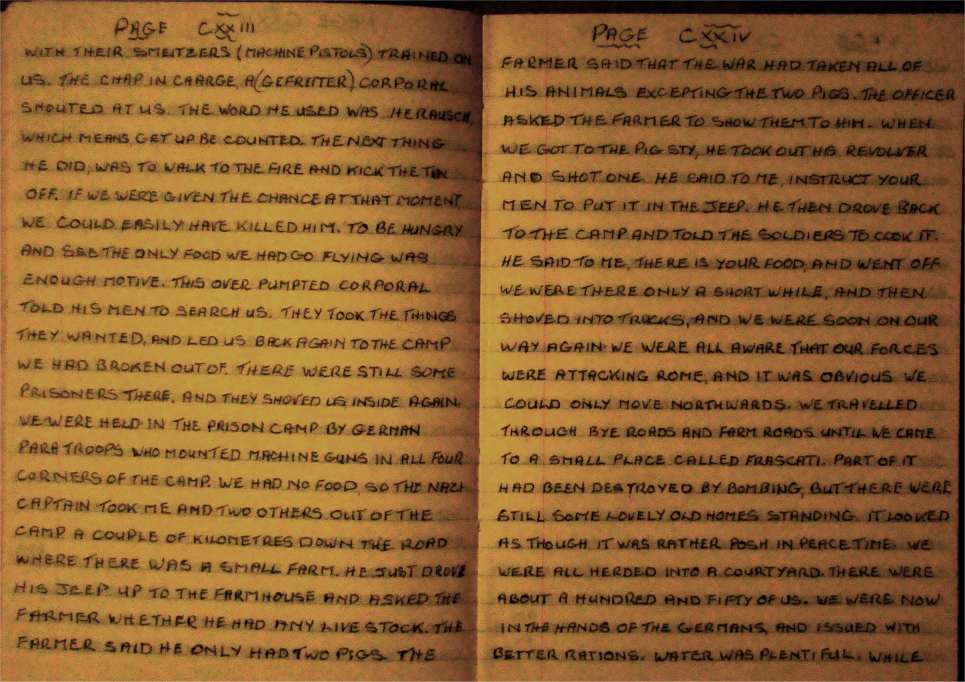 PAGE CXXIII
WITH THEIR SMEITZERS (MACHINE PISTOLS) TRAINED ON
US. THE CHAP IN CHARGE, A (GEFREITER) CORPORAL
SHOUTED AT US. THE WORD HE USED WAS HERAUSCH,
WHICH MEANS GET UP BE COUNTED. THE NEXT THING
HE DID, WAS TO WALK TO THE FIRE AND KICK THE TIN
OFF. IF WE WERE GIVEN THE CHANCE AT THAT MOMENT
WE COULD EASILY HAVE KILLED HIM. TO BE HUNGRY
AND SEE THE ONLY FOOD WE HAD GO FLYING WAS
ENOUGH MOTIVE. THIS OVER PUMPTED CORPORAL
TOLD HIS MEN TO SEARCH US. THEY TOOK THE THINGS
THEY WANTED, AND LED US BACK AGAIN TO THE CAMP
WE HAD BROKEN OUT OF. THERE WERE STILL SOME
PRISONERS THERE, AND THEY SHOVED US INSIDE AGAIN.
WE WERE HELD IN THE PRISON CAMP BY GERMAN
PARATROOPS WHO MOUNTED MACHINE GUNS IN ALL FOUR
CORNERS OF THE CAMP. WE HAD NO FOOD, SO THE NAZI
CAPTAIN TOOK ME AND TWO OTHERS OUT OF THE
CAMP A COUPLE OF KILOMETRES DOWN THE ROAD
WHERE THERE WAS A SMALL FARM. HE JUST DROVE
HIS JEEP UP TO THE FARMHOUSE AND ASKED THE
FARMER WHETHER HE HAD ANY LIVE STOCK. THE
FARMER SAID HE ONLY HAD TWO PIGS. THE
PAGE CXXIV
FARMER SAID THAT THE WAR HAD TAKEN ALL OF
HIS ANIMALS EXCEPTING THE TWO PIGS. THE OFFICER
ASKED THE FARMER TO SHOW THEM TO HIM. WHEN
WE GOT TO THE PIG STY, HE TOOK OUT HIS REVOLVER
AND SHOT ONE. HE SAID TO ME, INSTRUCT YOUR
MEN TO PUT IT IN THE JEEP. HE THEN DROVE BACK
TO THE CAMP AND TOLD THE SOLDIERS TO COOK IT.
HE SAID TO ME, THERE IS YOUR FOOD, AND WENT OFF.
WE WERE THERE ONLY A SHORT WHILE, AND THEN
SHOVED INTO TRUCKS, AND WE WERE SOON ON OUR
WAY AGAIN. WE WERE ALL AWARE THAT OUR FORCES
WERE ATTACKING ROME, AND IT WAS OBVIOUS WE
COULD ONLY MOVE NORTHWARDS. WE TRAVELLED
THROUGH BYE ROADS AND FARM ROADS UNTIL WE CAME
TO A SMALL PLACE CALLED FRASCATI. PART OF IT
HAD BEEN DESTROYED BY BOMBING, BUT THERE WERE
STILL SOME LOVELY OLD HOMES STANDING. IT LOOKED
AS THOUGH IT WAS RATHER POSH IN PEACE TIME. WE
WERE ALL HERDED INTO A COURTYARD. THERE WERE
ABOUT A HUNDRED AND FIFTY OF US. WE WERE NOW
IN THE HANDS OF THE GERMANS, AND ISSUED WITH
BETTER RATIONS. WATER WAS PLENTIFUL. WHILE